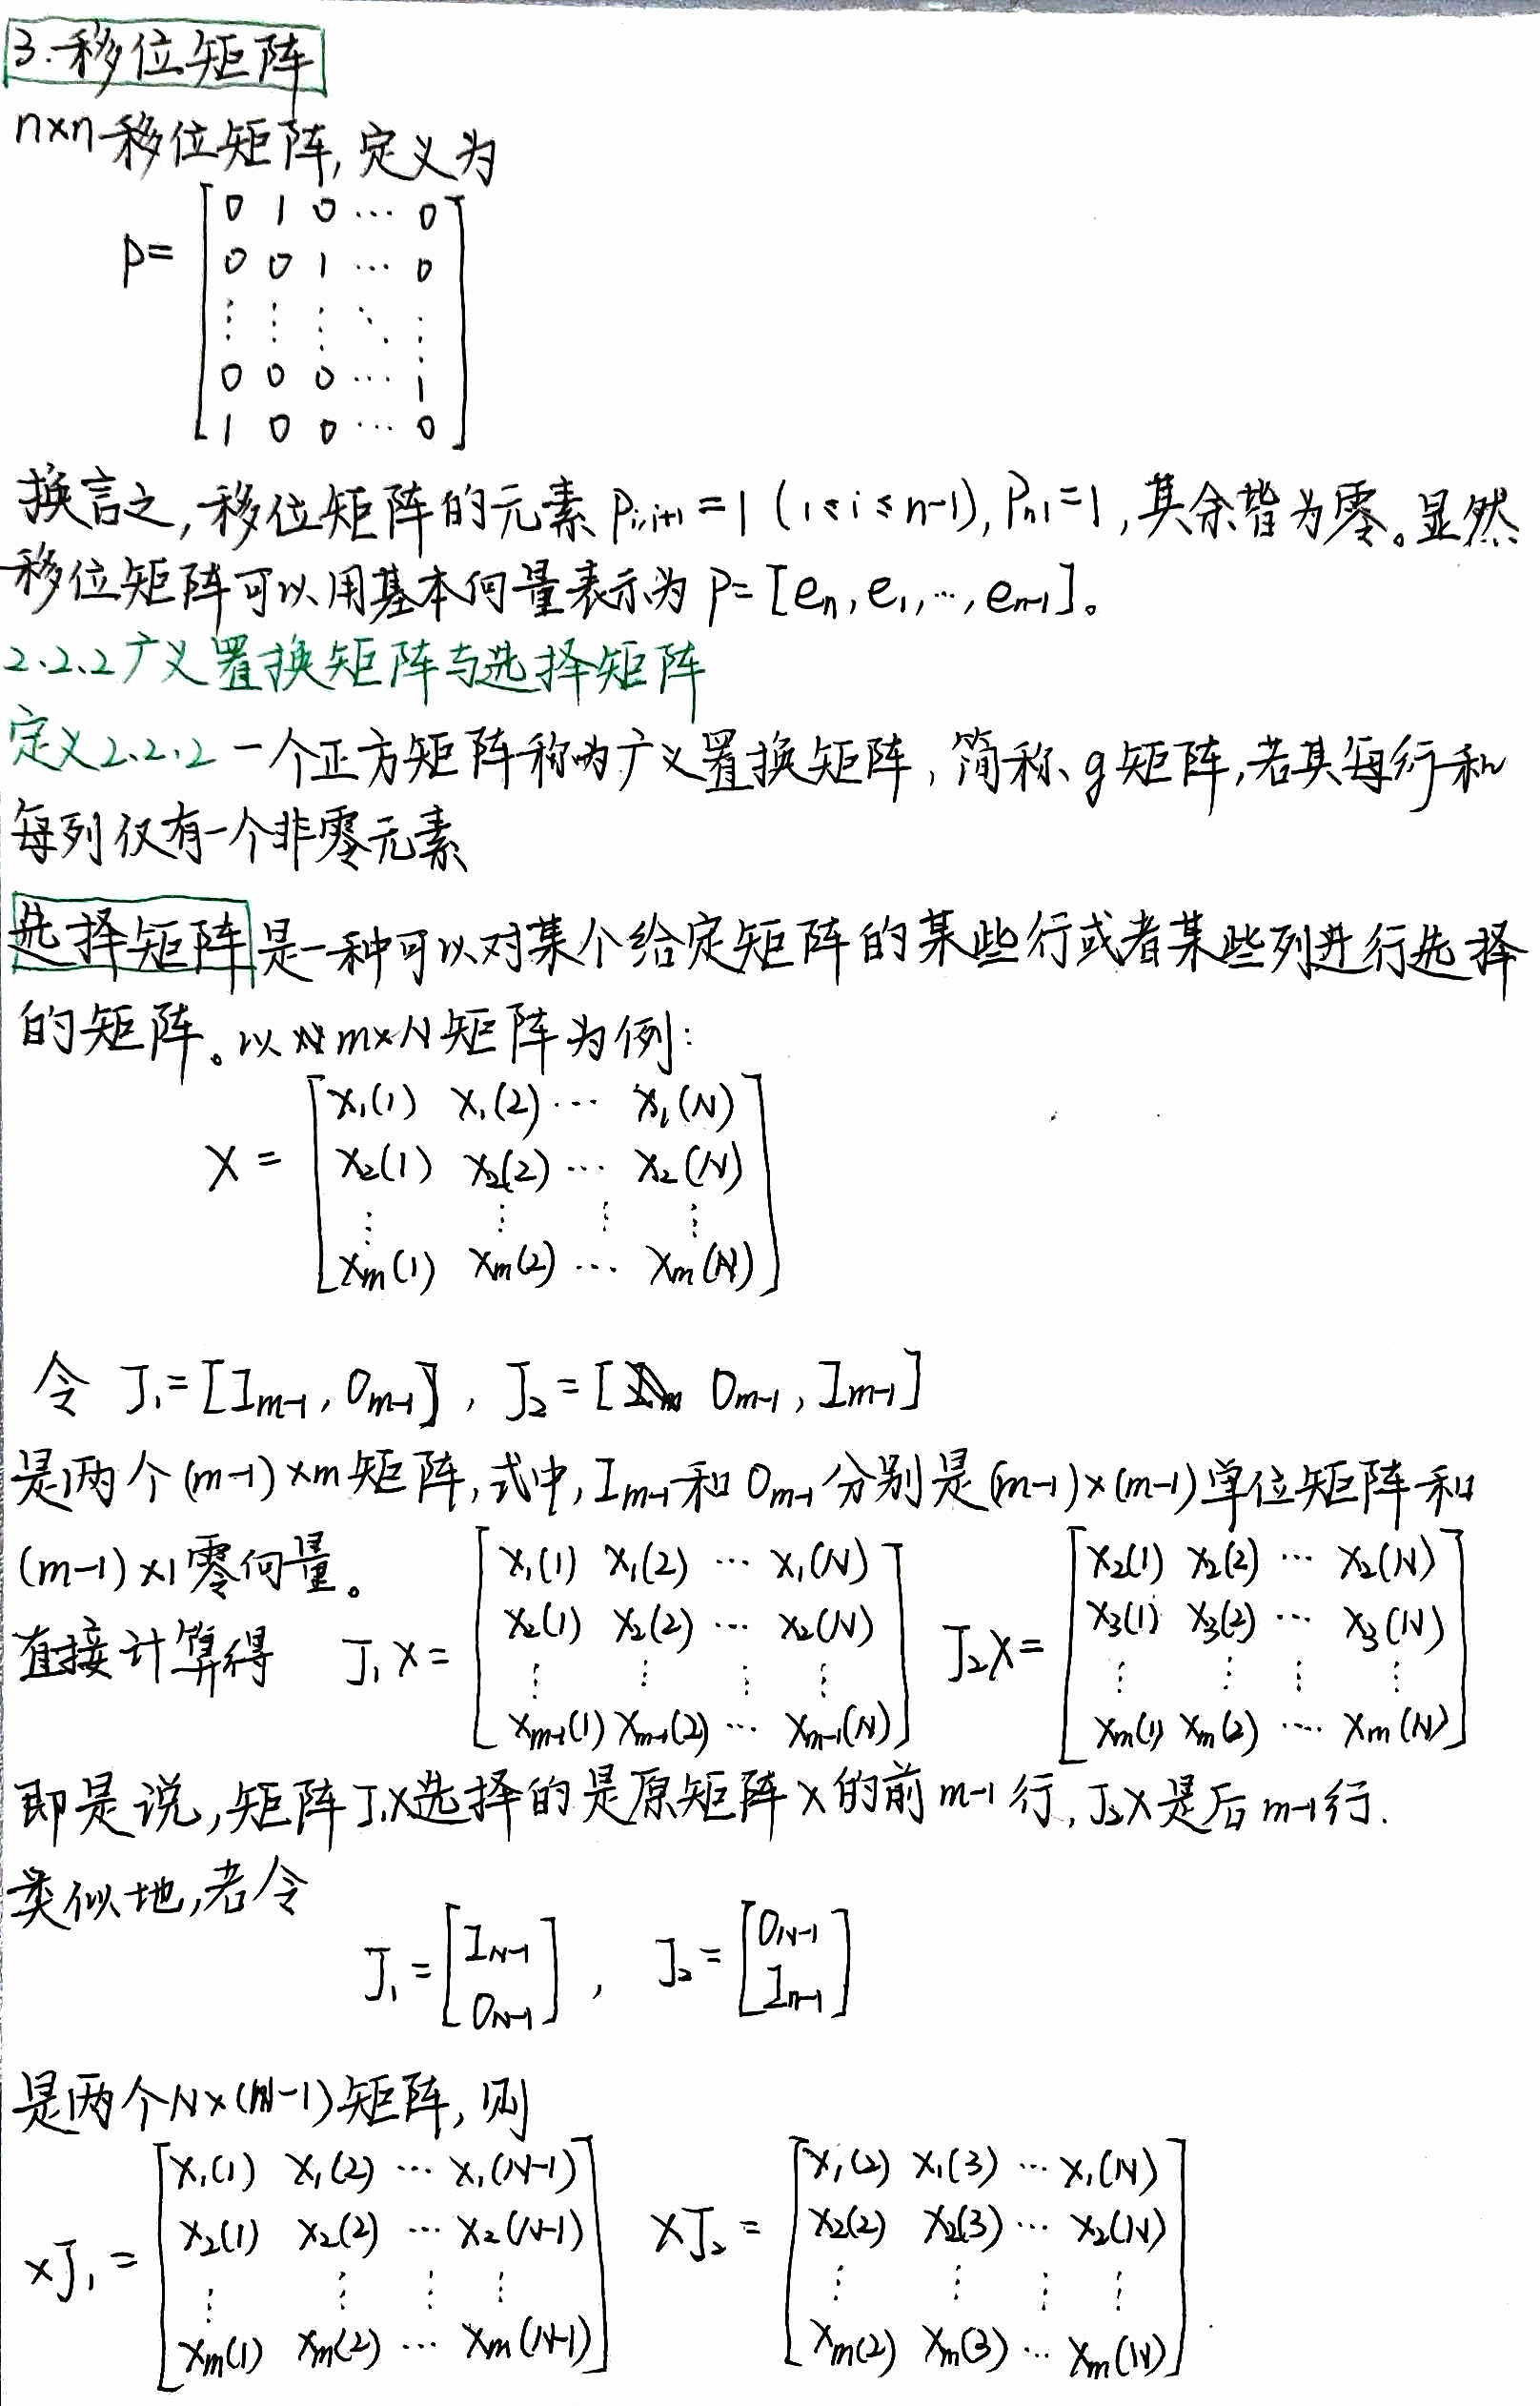 3.移位矩阵
n×n移位矩阵,定义为
P= [0 1 0 ⋯ 0
0 0 1 ⋯ 0
⋮ ⋮ ⋮ ⋱ ⋮
0 0 0 ⋯ 1
1 0 0 ⋯ 0]
换言之,移位矩阵的元素 P_{i,i+1}=1 (1≤i≤n-1), P_{n1}=1,其余皆为零。显然
移位矩阵可以用基本向量表示为 P=[e_n, e_1, ⋯, e_{n-1}]。
2.2.2广义置换矩阵与选择矩阵
定义2.2.2 一个正方矩阵称为广义置换矩阵,简称g矩阵,若其每行和
每列仅有一个非零元素
选择矩阵是一种可以对某个给定矩阵的某些行或者某些列进行选择
的矩阵。以m×N矩阵为例:
X = [x_1(1) x_1(2) ⋯ x_1(N)
x_2(1) x_2(2) ⋯ x_2(N)
⋮ ⋮ ⋮ ⋮
x_m(1) x_m(2) ⋯ x_m(N)]
令 J_1=[I_{m-1}, 0_{m-1}], J_2=[0_{m-1}, I_{m-1}]
是两个(m-1)×m矩阵,式中,I_{m-1}和0_{m-1}分别是(m-1)×(m-1)单位矩阵和
(m-1)×1零向量。
直接计算得 J_1X= [x_1(1) x_1(2) ⋯ x_1(N)
x_2(1) x_2(2) ⋯ x_2(N)
⋮ ⋮ ⋮ ⋮
x_{m-1}(1) x_{m-1}(2) ⋯ x_{m-1}(N)]
J_2X= [x_2(1) x_2(2) ⋯ x_2(N)
x_3(1) x_3(2) ⋯ x_3(N)
⋮ ⋮ ⋮ ⋮
x_m(1) x_m(2) ⋯ x_m(N)]
即是说,矩阵J_1X选择的是原矩阵X的前m-1行,J_2X是后m-1行.
类似地,若令
J_1= [I_{N-1}
0_{N-1}], J_2= [0_{N-1}
I_{n-1}]
是两个N×(N-1)矩阵,则
XJ_1= [x_1(1) x_1(2) ⋯ x_1(N-1)
x_2(1) x_2(2) ⋯ x_2(N-1)
⋮ ⋮ ⋮ ⋮
x_m(1) x_m(2) ⋯ x_m(N-1)]
XJ_2= [x_1(2) x_1(3) ⋯ x_1(N)
x_2(2) x_2(3) ⋯ x_2(N)
⋮ ⋮ ⋮ ⋮
x_m(2) x_m(3) ⋯ x_m(N)]